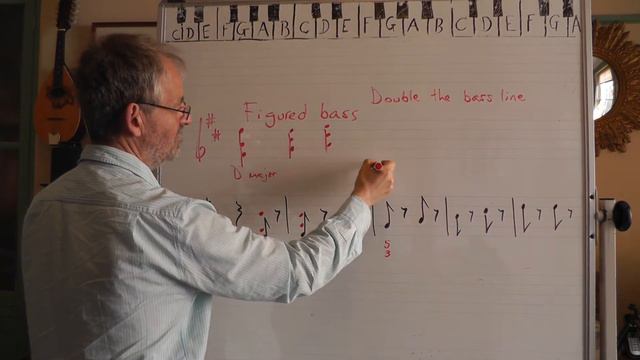 C D E F G A B C D E F G A B C D E F G A
Double the bass line
Figured bass
D major
5
3